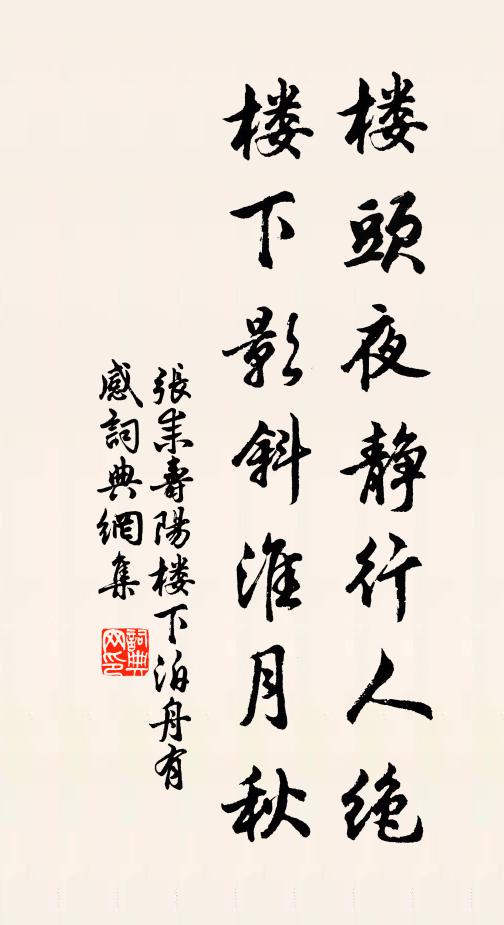 楼頭夜静行人绝
楼下影斜淮月秋
張耒壽陽楼下泊舟有
感詞典網集
詞典网印